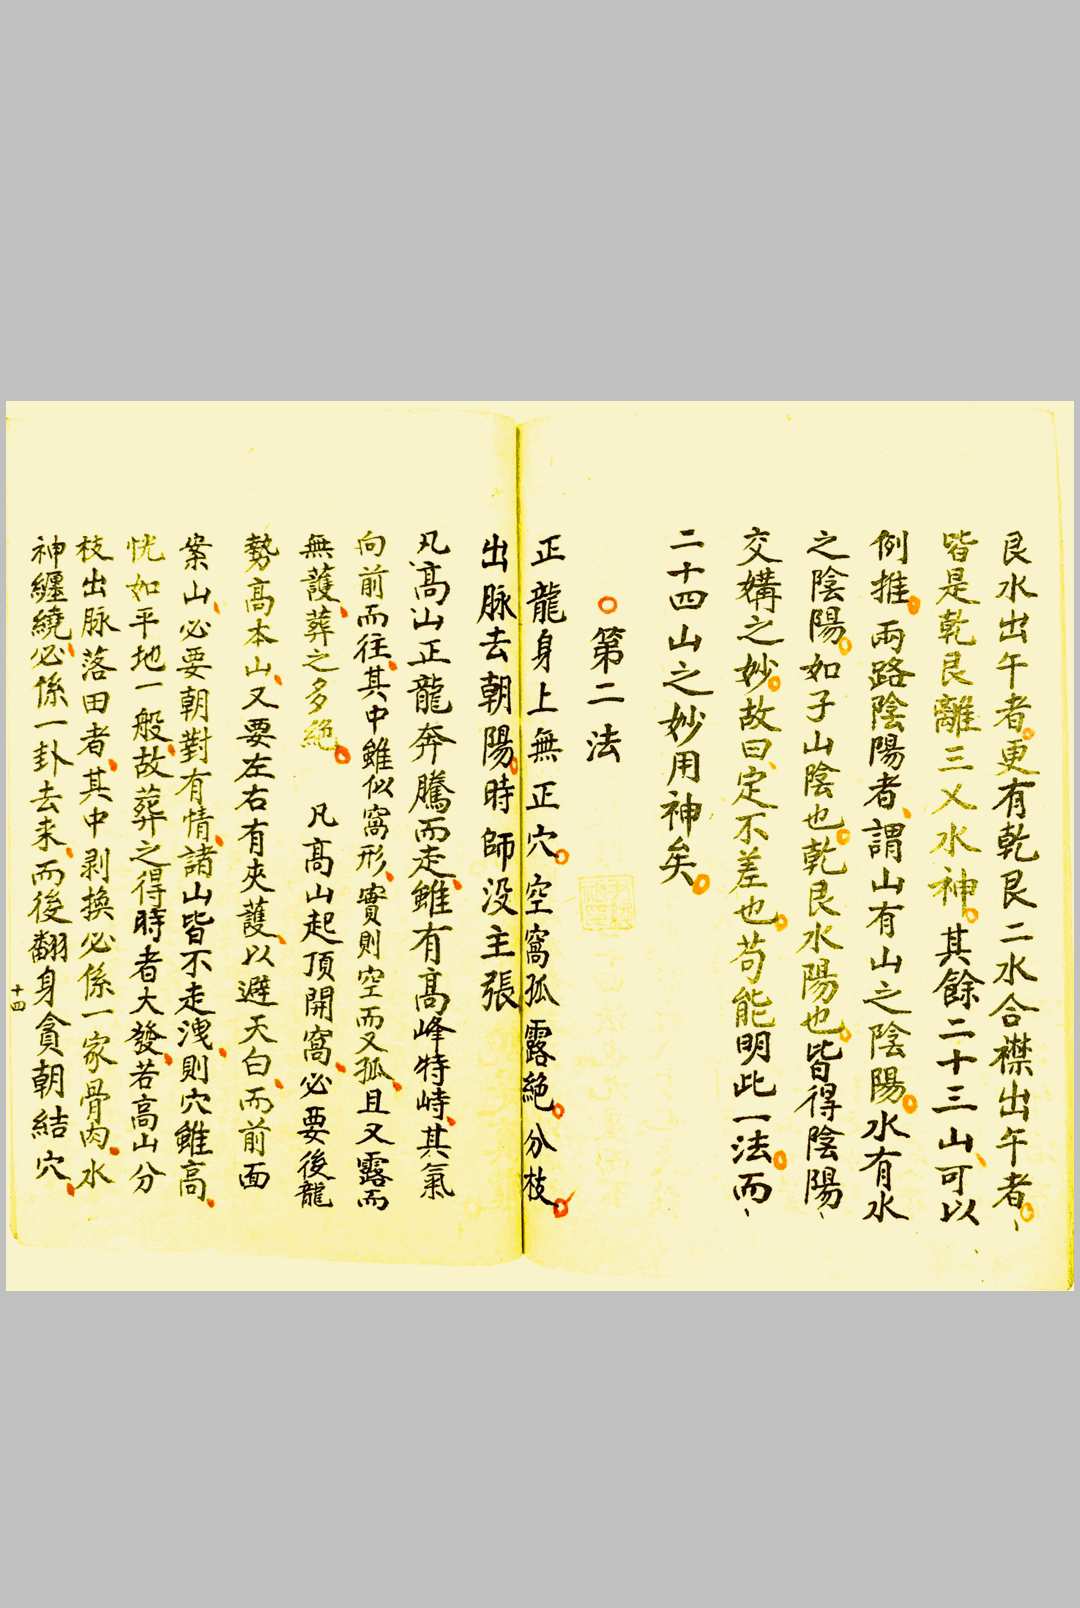 艮水出午者更有乾艮二水合襟出午者
皆是乾艮離三义水神其餘二十三山可以
例推兩路陰陽者謂山有山之陰陽水有水
之陰陽如子山陰也乾艮水陽也皆得陰陽
交媾之妙故曰定不差也苟能明此一法而
二十四山之妙用神矣
第二法
正龍身上無正穴空窩孤露絕分枝
出脉去朝陽時師没主張
凡高山正龍奔騰而走雖有高峰特峙其氣
向前而往其中雖似窩形實則空而又孤且又露而
無護葬之多絕 凡高山起頂開窩必要後龍
勢高本山又要左右有夾護以避天白而前面
案山必要朝對有情諸山皆不走洩則穴雖高
恍如平地一般故葬之得時者大發若高山分
枝出脉落田者其中剥換必係一家骨肉水
神纏繞必係一卦去来而後翻身貪朝結穴
十四